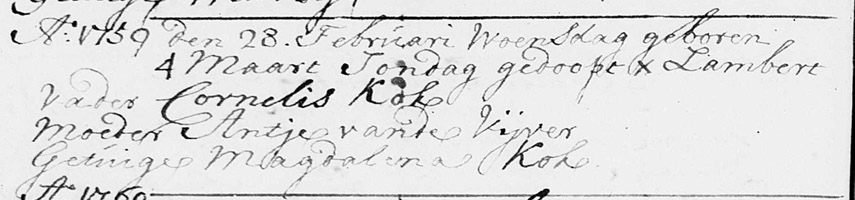 Ao. 1759 den 28. Februari Woensdag geboren
4 Maart Sondag gedoopt x Lambert
Vader Cornelis Kok
Moeder Antje vande Vijver
Getuige Magdalena Kok
Ao 1760